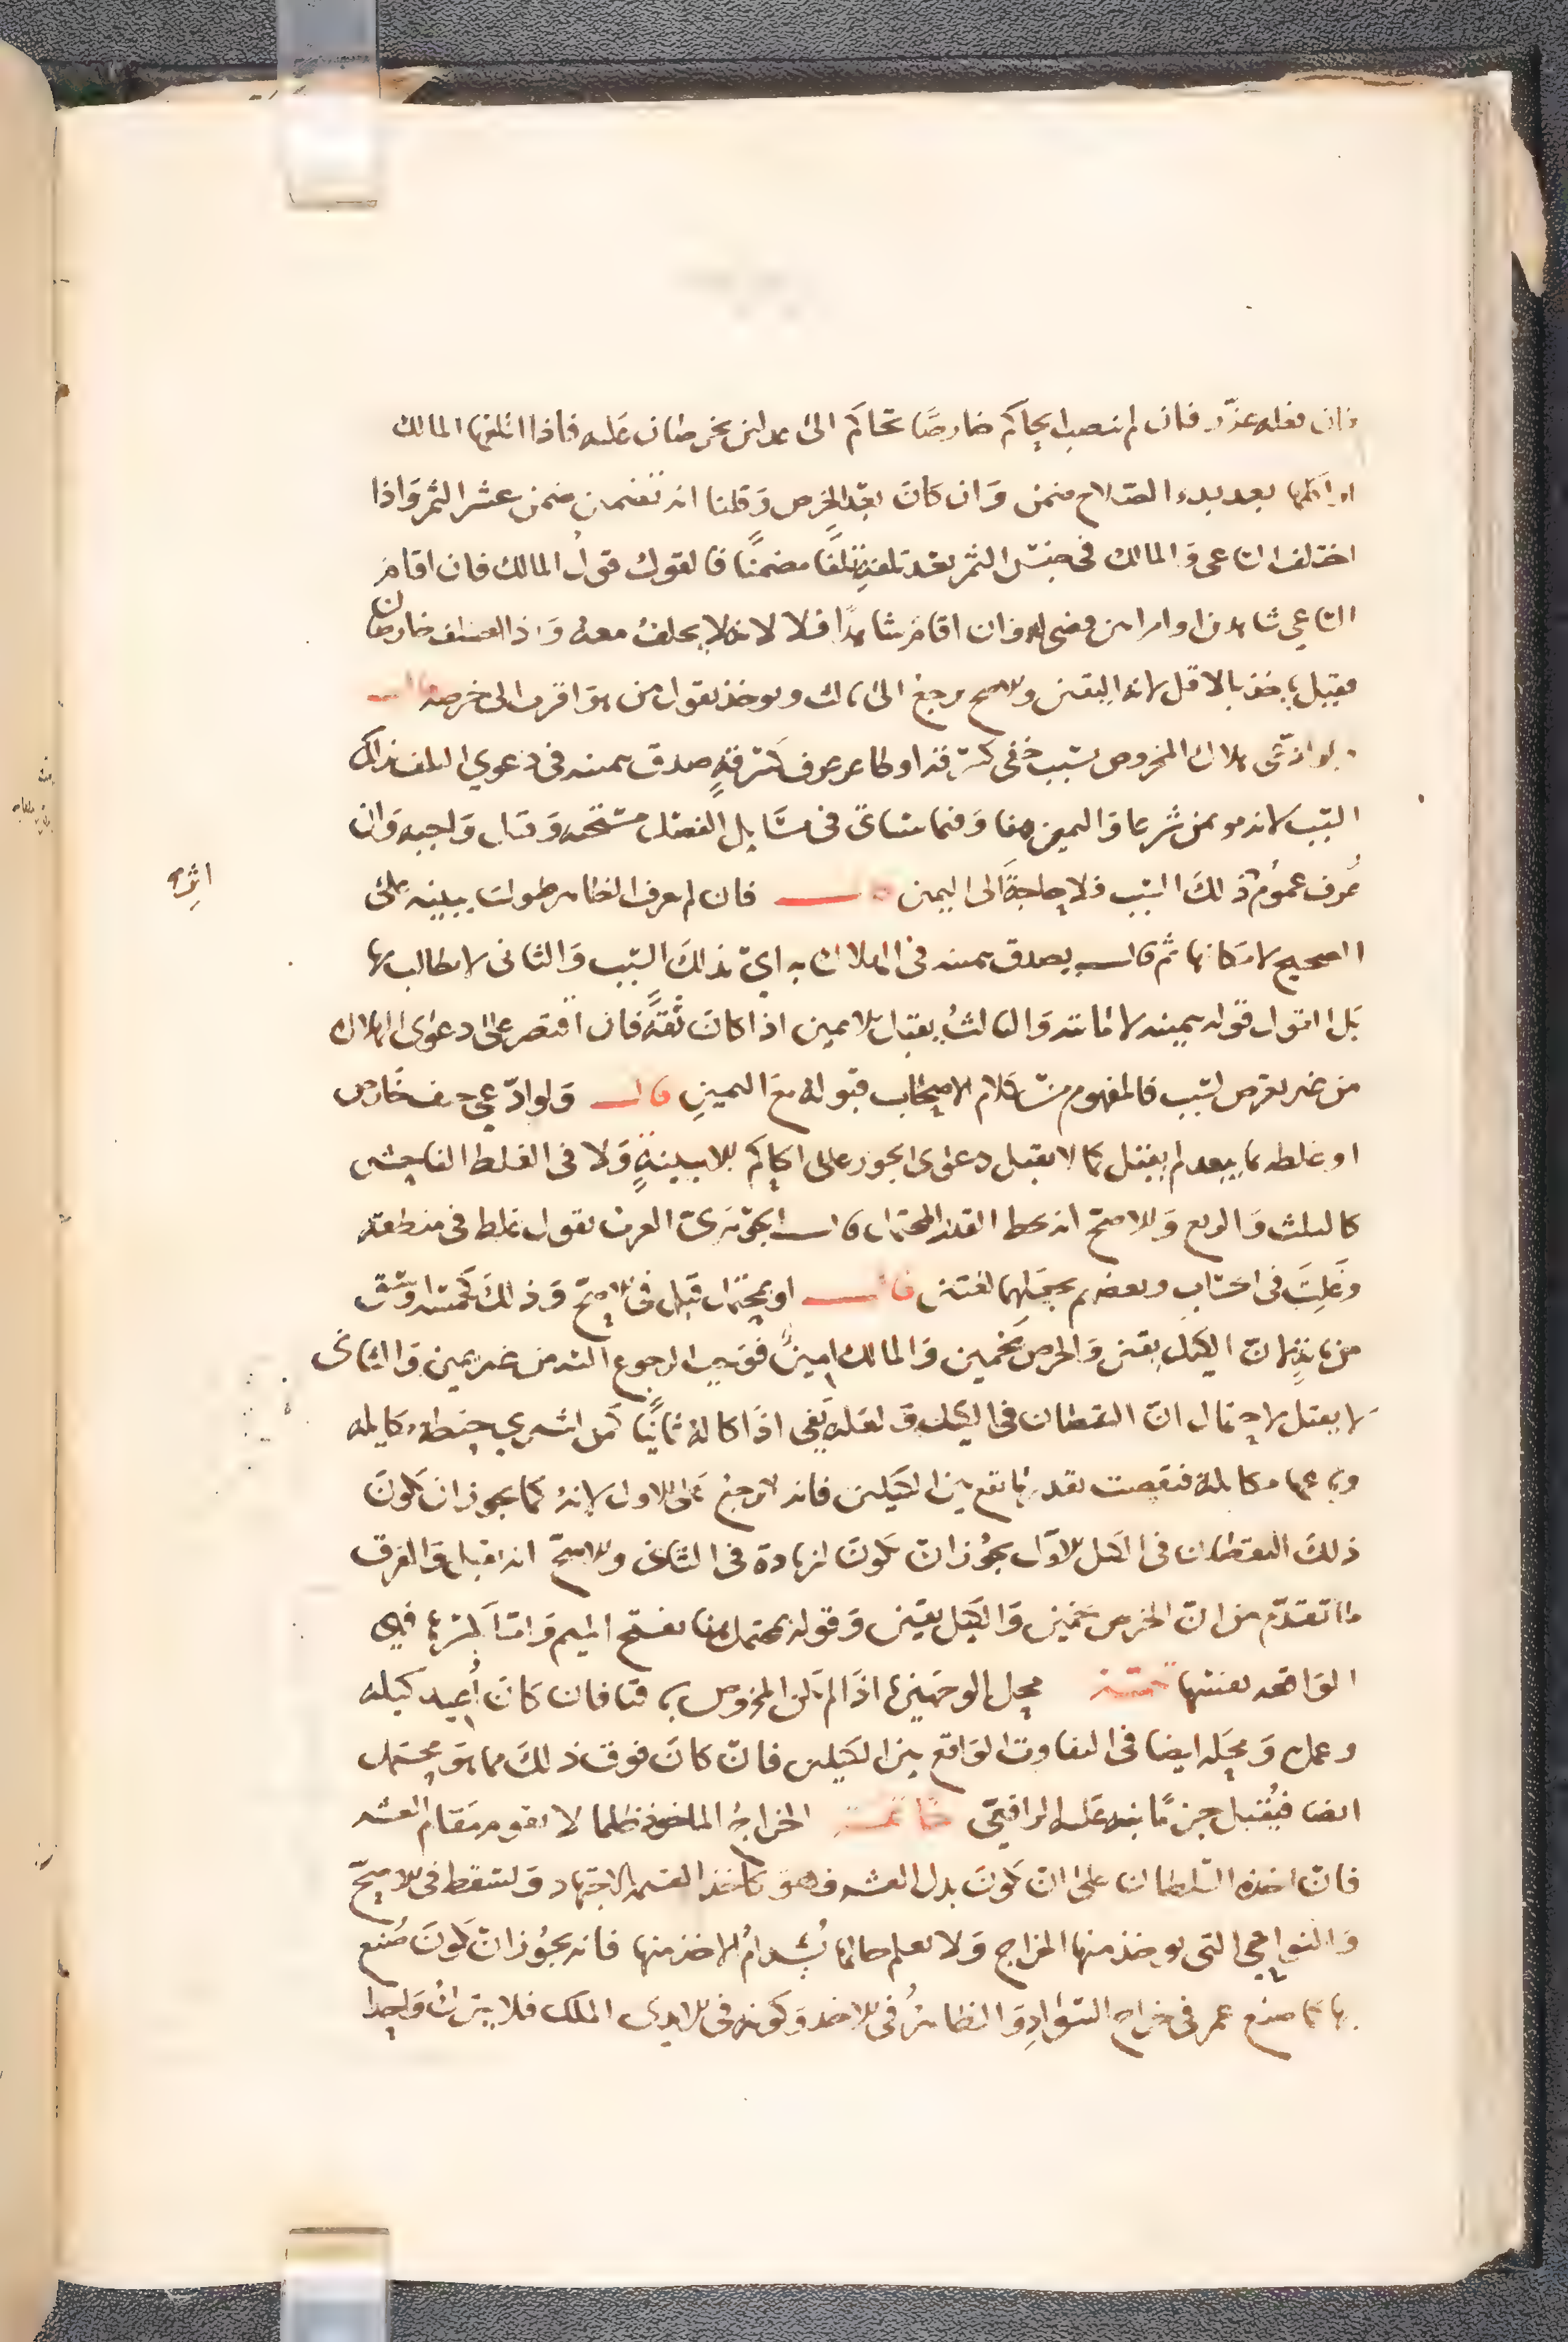 فان فعله عزر فان لم ينصب الحاكم خارصًا تحاكم الى عدلين يخرصان عليه فاذا اتلفها المالك
او اكلها بعد بدو الصلاح ضمن وَان كانَ بعد الخرص وَقلنا انه تضمين ضمن عشر الثمر وَاذا
اختلف الساعي وَالمالك في جنس الثمر بعد تلفه تلفًا مضمنًا فالقول قولُ المالك فان اقام
الساعي شاهدين او امراتين قضي له وان اقام شاهدًا فلا لانه لا يحلفُ معه وَاذا اختلف خارصان
فقيل ياخذ بالاقل لانه اليقين والاصح يرجع الى ثالث ويوخذ بقول من هوَ اقرب الى خرصه قال
ولو ادّعى هلاك المخروص بسبب خفي كسرقة او ظاهر عرف كسرقةٍ صدق بيمينه في دعوي التلف بذلك
السّبب لانه موتمن شرعا وَاليمين هنا وَفيما سياتي في مسَايل الفصل مستحبه وَقيل وَاجبه وَان
عُرف عمومُ ذلكَ السّبب فلا حاجةَ الى اليمين قال فان لم يعرف الظاهر طولب ببينه على
الصحيح لامكانها ثم قال يصدق بيمينه في الهلاك به ايْ بذلكَ السّبب وَالثاني لا يطالب بها
بَل القول قوله بيمينه لامانته وَالثالثُ يقبل بلا يمين اذا كانَ ثقةً فان اقتصر على دعوى الهلاك
من غير تعرض لسَبب فالمفهوم من كلام الاصحاب قبوله مع اليمينِ قال وَلو ادّعي حيف خَارص
او غلطه بما يبعد لم يقبل كما لا يقبل دعوى الجور على الحاكم الا ببينةٍ وَلا في الغلط الفاحش
كالثلث وَالربع وَالاصحّ انه يحط القدر المحتمل قال الجوهَريّ العرب تقول غلط في منطقه
وَغَلِتَ في الحسَاب وبعضهم يجعلهما لغتين قال او بمحتمل قبل في الاصحّ وَذلك كخمسَه اوسق
من مايهٍ لانّ الكيل يقين وَالخرص تخمين وَالمالك امينٌ فوَجب الرجوع اليه من غير يمين وَالثاني
لا يقبل لاحتمال انّ النقصان في الكيل وَلعَله يَفي اذَا كاله ثانيًا كَمن اشتري حنطه مكايله
وباعها مكايلة فنقصت بقدر ما يقع بين الكيلين فانه لا يرجع على الاول لانهُ كما يجوز ان يكونَ
ذلكَ النقصان في الكيل الاوّل يجُوز انْ يكونَ الزيادة في الثاني والاصحّ انه يقبل وَالفرق
ما تقدّم من انّ الخرص تخمين وَالكيل يقين وَقوله محتمل هنا بفتح الميم وَامّا بكسْرها فهي
الوَاقعه بعينها تتمه محل الوَجهينِ اذَا لم يكن المخروص باقيا فان كانَ أُعيد كيله
وعمل به وَمحلهُ ايضا في التفاوت الوَاقع بين الكيلين فانْ كانَ فوق ذلكَ مما هوَ محتمل
ايضا فيُقبل جزمًا نبه عَليه الرافعيّ خاتمه الخراجُ الماخوذ ظلما لا يقوم مقامَ العشر
فانْ اخذه السّلطان على انْ يكونَ بدل العشر فهو كاخذ القيمه بالاجتهاد وَلتسقط في الاصحّ
وَالنواحي التي يوخذ منها الخراج وَلا يعلم حالها يُستدامُ الاخذ منها فانه يجُوز انْ يكونَ صُنع
بها كما صنع عمر في خراج السّوَادِ وَالظاهرُ في الاخذ وَكونه في الايدي الملك فلا يترك وَاحدا